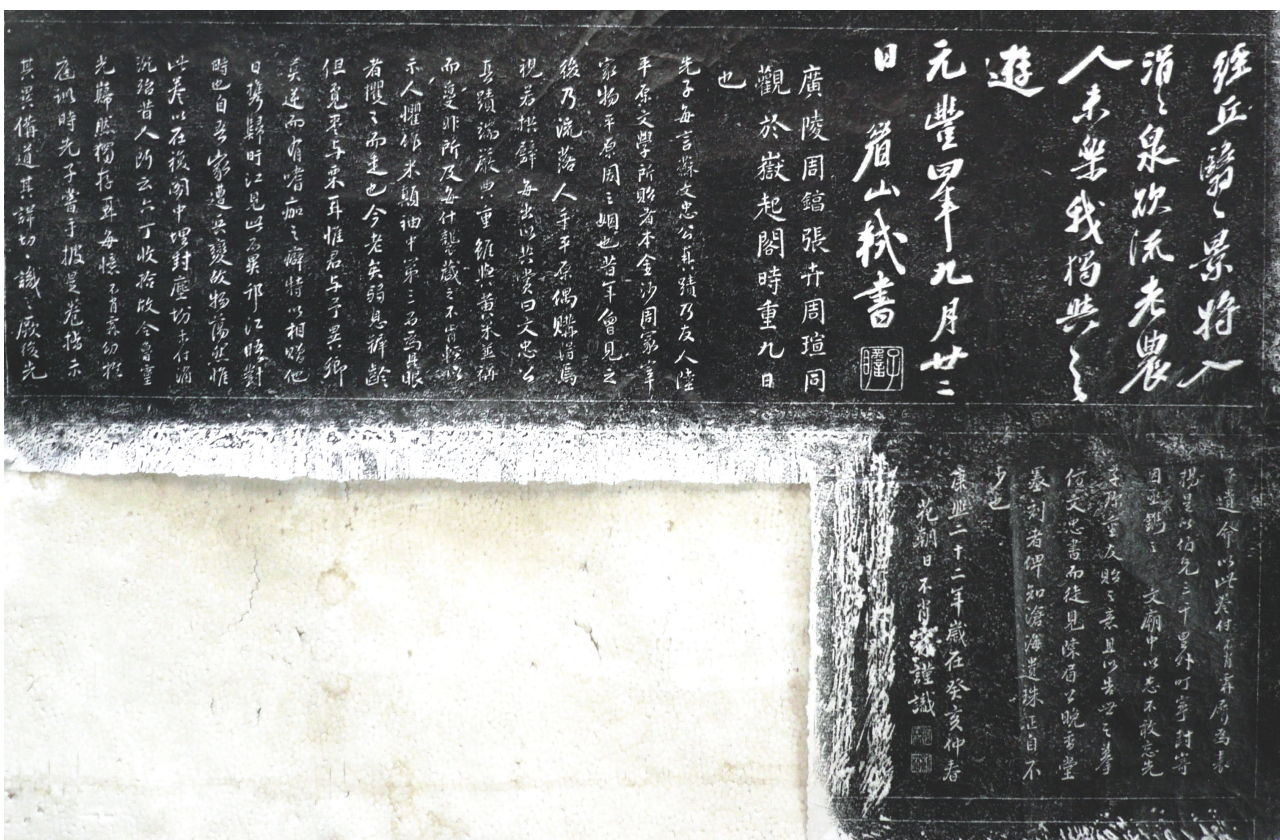 經丘翳〻景將入
涓〻泉欲流老農
人未樂我獨與之
遊
元豐四年九月廿二
日 眉山軾書
廣陵周鍢張卉周瑄同
觀於嶽起閣時重九日
也
先子每言蘇文忠公真蹟乃友人陸
平原文學所貽者本金沙周家宰
家物平原周之姻也昔年曾見之
後乃流落人手平原偶購得焉
視若拱璧每出以共賞曰文忠公
真蹟端嚴典重雖與黃米並稱
而 非所及每什襲藏之不肯輕以
示人懼作米顛袖中第三石為具眼
者攫之而走也今老矣弱息
但覓棗與栗耳惟君與予異鄉
莫逆而有嗜痂之癖特以相贈他
日攜歸時江見此石異邗江晤對
時也自吾家遭兵變故物蕩然惟
此卷以在複閣中
昔人所云六丁收拾故今
光歸然獨存耳每憶不肖 幼於
庭訓時先子嘗手披是卷指示
其異備道其詳切切識之厥後先
子遺命以此卷付不肖 為
提是以伯兄二千里外叮寧封寄
文廟中以志不敢忘先
子與金友貽之意且以告世之摹
何文忠書而徒見陳眉公晚香堂
摹刻者俾知滄海遺珠正自不
少也
康熙二十二年歲在癸亥仲春
花朝日不肖 謹識